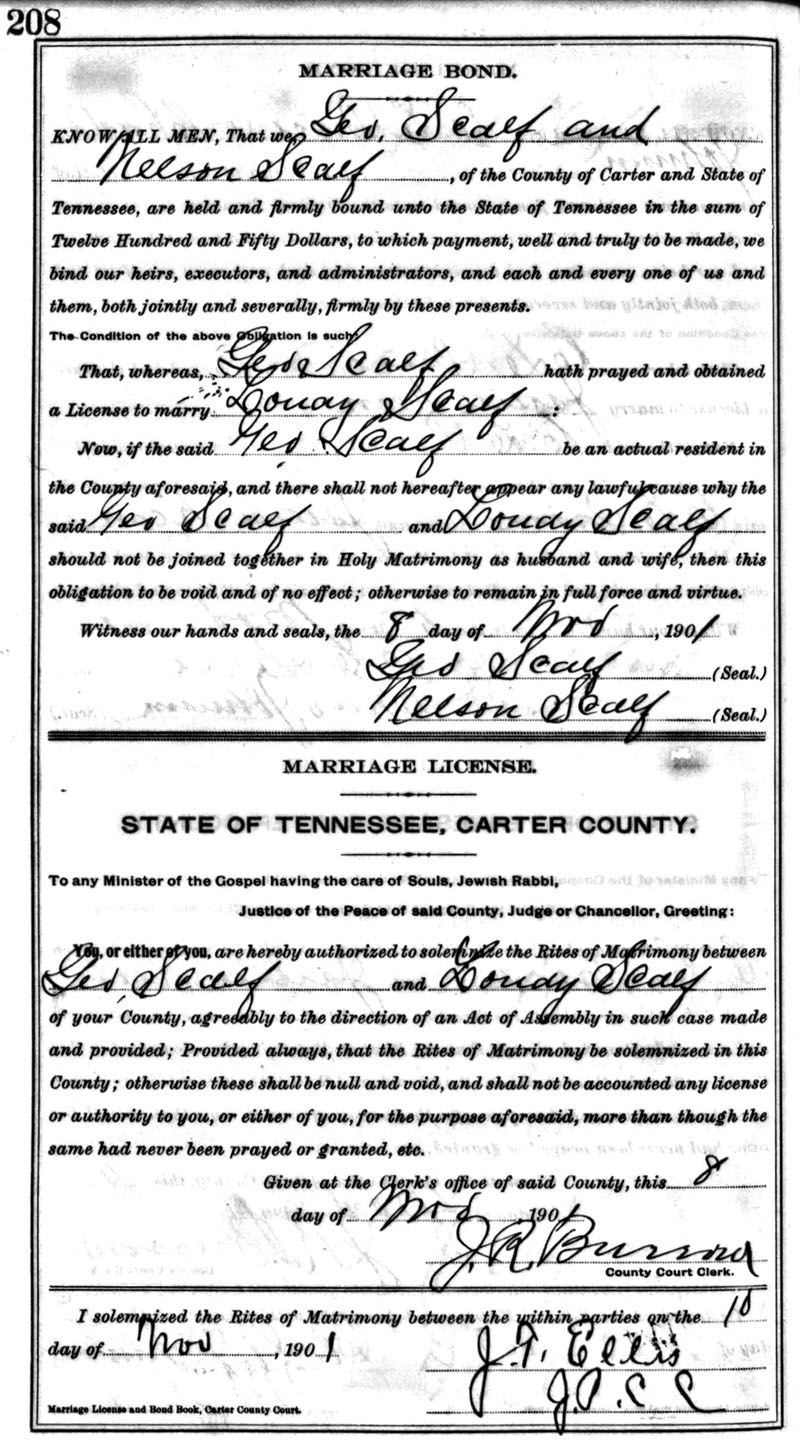 208
MARRIAGE BOND.
KNOW ALL MEN, That we, Geo. Scalf and
Nelson Scalf, of the County of Carter and State of
Tennessee, are held and firmly bound unto the State of Tennessee in the sum of
Twelve Hundred and Fifty Dollars, to which payment, well and truly to be made, we
bind our heirs, executors, and administrators, and each and every one of us and
them, both jointly and severally, firmly by these presents.
The Condition of the above Obligation is such:
That, whereas, Geo Scalf hath prayed and obtained
a License to marry Louday Scalf :
Now, if the said Geo Scalf be an actual resident in
the County aforesaid, and there shall not hereafter appear any lawful cause why the
said Geo Scalf and Louday Scalf
should not be joined together in Holy Matrimony as husband and wife, then this
obligation to be void and of no effect; otherwise to remain in full force and virtue.
Witness our hands and seals, the 8 day of Nov, 1901
Geo Scalf (Seal.)
Nelson Scalf (Seal.)
MARRIAGE LICENSE.
STATE OF TENNESSEE, CARTER COUNTY.
To any Minister of the Gospel having the care of Souls, Jewish Rabbi,
Justice of the Peace of said County, Judge or Chancellor, Greeting:
You, or either of you, are hereby authorized to solemnize the Rites of Matrimony between
Geo, Scalf and Louday Scalf
of your County, agreeably to the direction of an Act of Assembly in such case made
and provided; Provided always, that the Rites of Matrimony be solemnized in this
County; otherwise these shall be null and void, and shall not be accounted any license
or authority to you, or either of you, for the purpose aforesaid, more than though the
same had never been prayed or granted, etc.
Given at the Clerk's office of said County, this 8
day of Nov 1901
J. R. Burrow
County Court Clerk.
I solemnized the Rites of Matrimony between the within parties on the 10
day of Nov, 1901
J. T. Ellis
J. P. C C
Marriage License and Bond Book, Carter County Court.